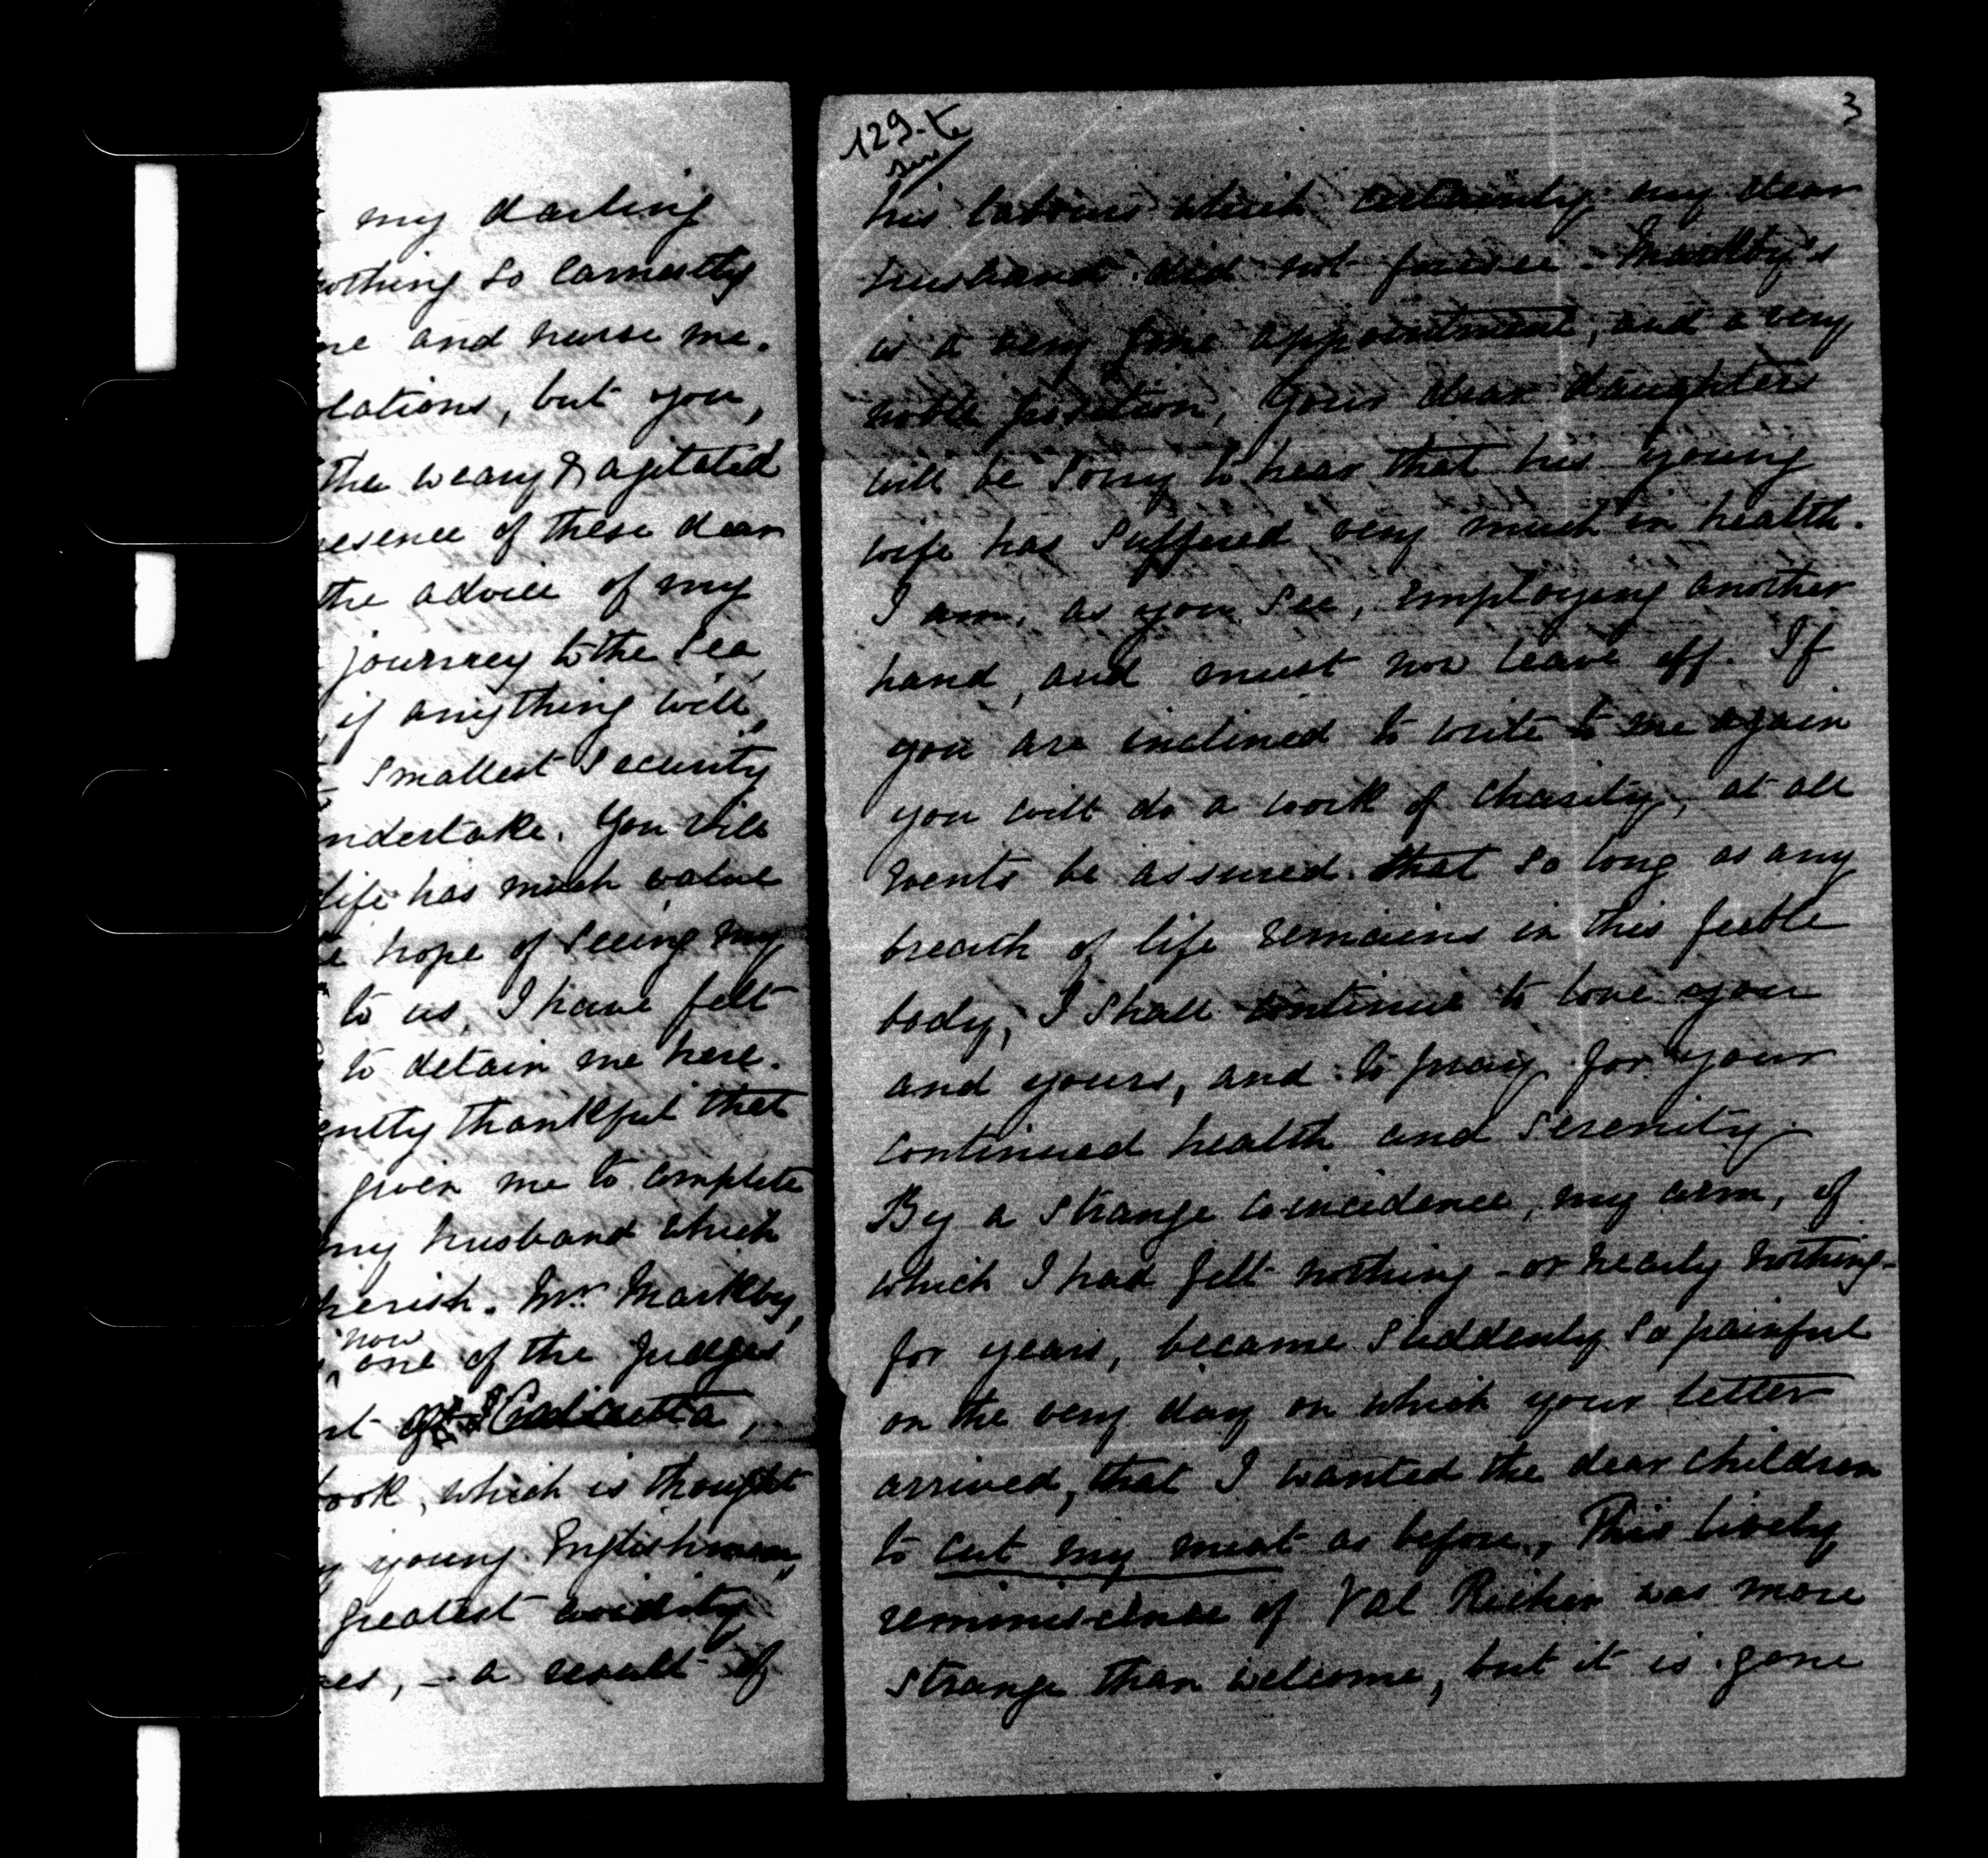 my darling
othing so earnestly
me and nurse me.
lations, but you,
the weary & agitated
esence of these dear
the advice of my
journey to the Sea,
if anything will,
Smallest Security
ndertake. You will
life has much value
e hope of seeing my
to us, I have felt
to detain me here.
ently thankful that
given me to complete
my husband which
herish. Mr. Markby,
now
one of the Judges
at Calcutta,
ook, which is thought
y young Englishmen,
greatest avidity
es, – a result of
129.te
3
his labours which certainly my dear
husband did not foresee. Markby's
is a very fine appointment, and a very
noble position, Your dear daughters
will be sorry to hear that his young
wife has suffered very much in health.
I am, as you see, employing another
hand, and must now leave off. If
you are inclined to write to me again
you will do a work of charity, at all
events be assured that so long as any
breath of life remains in this feeble
body, I shall continue to love you
and yours, and to pray for your
continued health and serenity.
By a strange coincidence, my arm, of
which I had felt nothing – or nearly nothing –
for years, became suddenly so painful
on the very day on which your letter
arrived, that I wanted the dear children
to cut my meat as before, This lively
reminiscence of Val Richer was more
strange than welcome, but it is gone